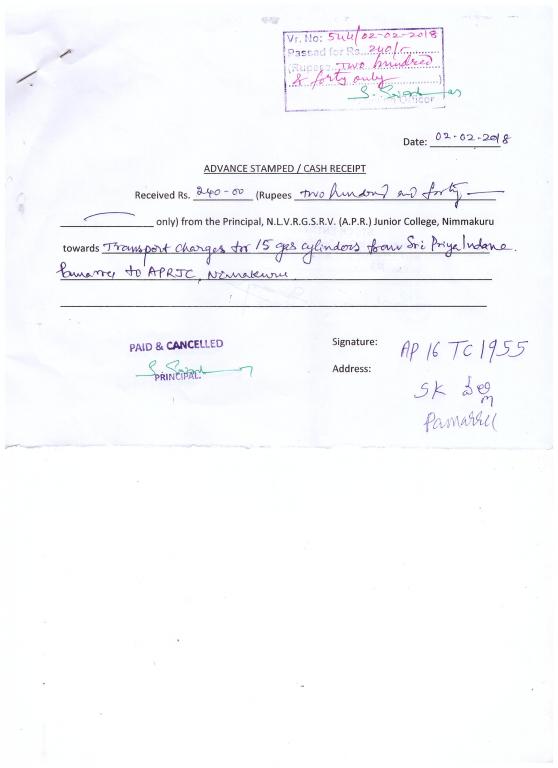 Vr. No: 544/02-02-2018
Passed for Rs. 240/-
(Rupees Two hundred
& forty only)
Officer
Date: 02-02-2018
ADVANCE STAMPED / CASH RECEIPT
Received Rs. 240-00 (Rupees two hundred and forty
only) from the Principal, N.L.V.R.G.S.R.V. (A.P.R.) Junior College, Nimmakuru
towards Transport charges for 15 gas cylinders from Sri Priya Indane.
Pamarru to APRJC, Nimmakuru
PAID & CANCELLED
Signature: AP 16 TC 1955
PRINCIPAL.
Address:
SK
Pamarru